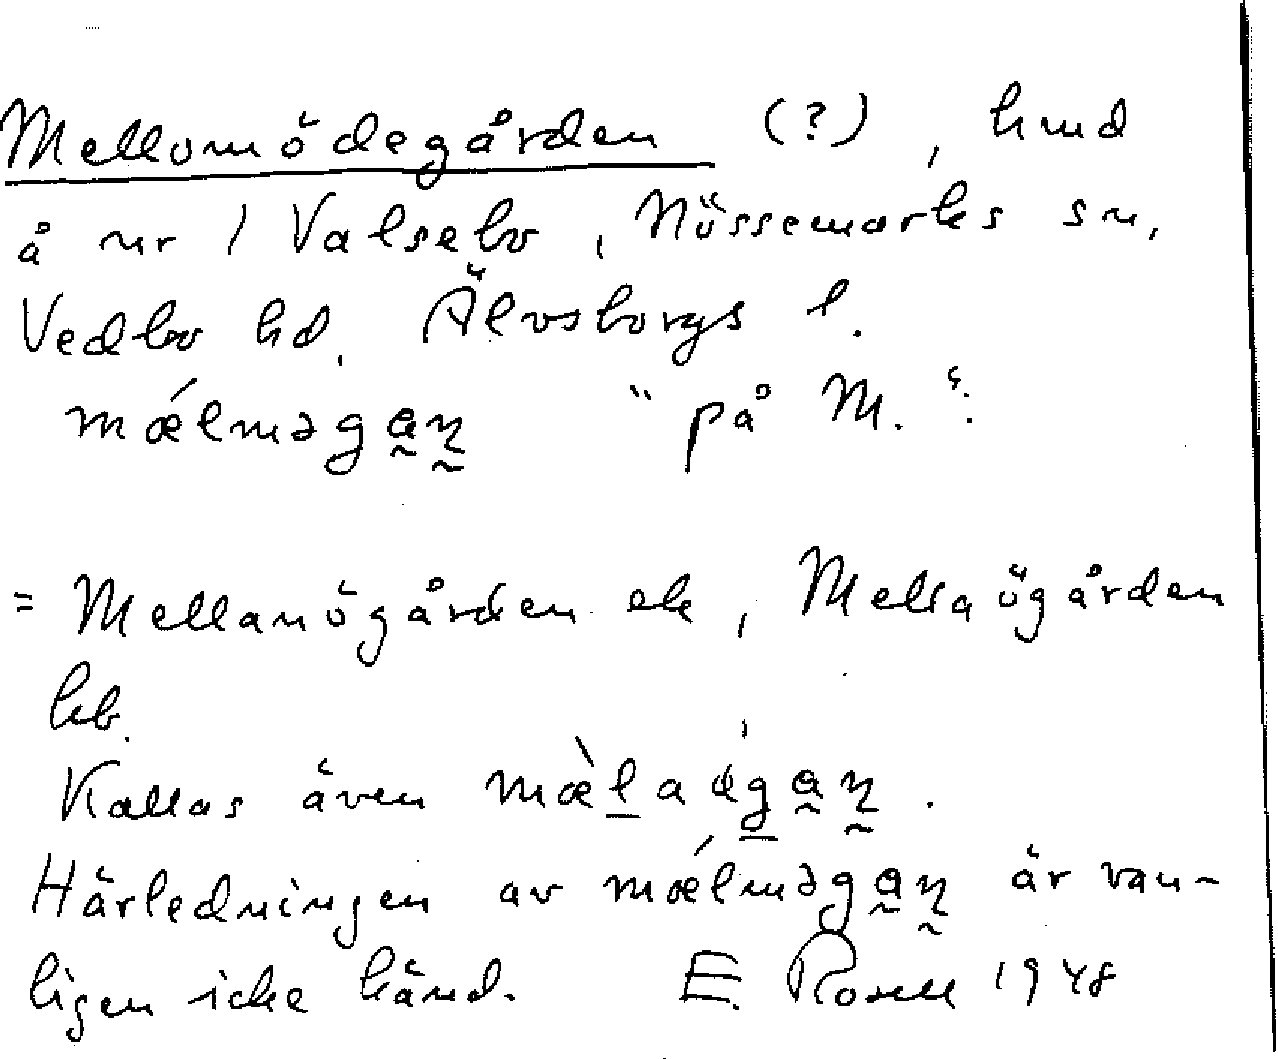 Mellomödegården (?), hmd
å nr 1 Valsebo, Nössemarks sn,
Vedbo hd, Älvsborgs l.
mǽlməga̰ṵ "på M.":
= Mellanögården ek, Mellaögården
hb.
Kallas även mæ̀l̲a ög̲a̰ṵ.
Härledningen av mǽlməga̰ṵ är van-
ligen icke känd. E. Rosell 1948